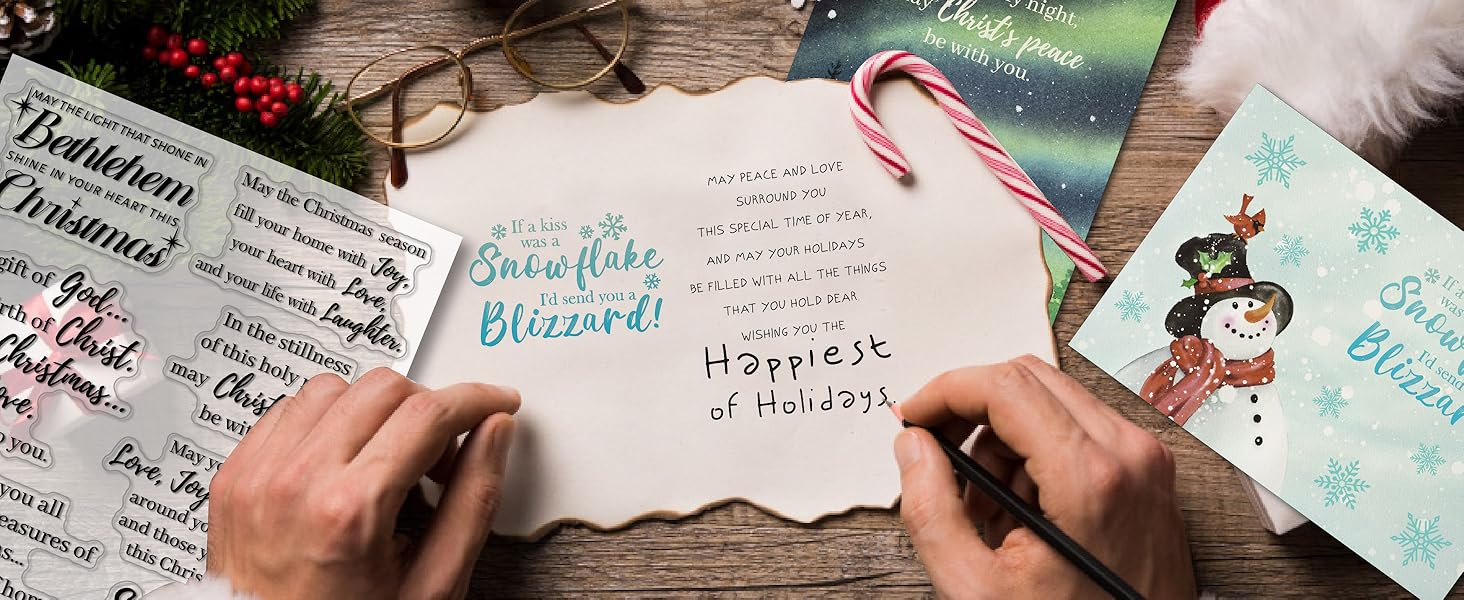 MAY THE LIGHT THAT SHONE IN
Bethlehem
SHINE IN YOUR HEART THIS
Christmas
May the Christmas season
fill your home with Joy,
your heart with Love,
and your life with Laughter.
gift of God...
birth of Christ.
Christmas...
Love.
to you.
In the stillness
of this holy
may Christ's
be with
May
Love, Joy
around you
and those
this
you all
treasures of
If a kiss
was a
Snowflake
I'd send you a
Blizzard!
MAY PEACE AND LOVE
SURROUND YOU
THIS SPECIAL TIME OF YEAR,
AND MAY YOUR HOLIDAYS
BE FILLED WITH ALL THE THINGS
THAT YOU HOLD DEAR
WISHING YOU THE
Happiest
of Holidays.
night,
Christ's peace
be with you.
If a
was
Snow
I'd send
Blizzar